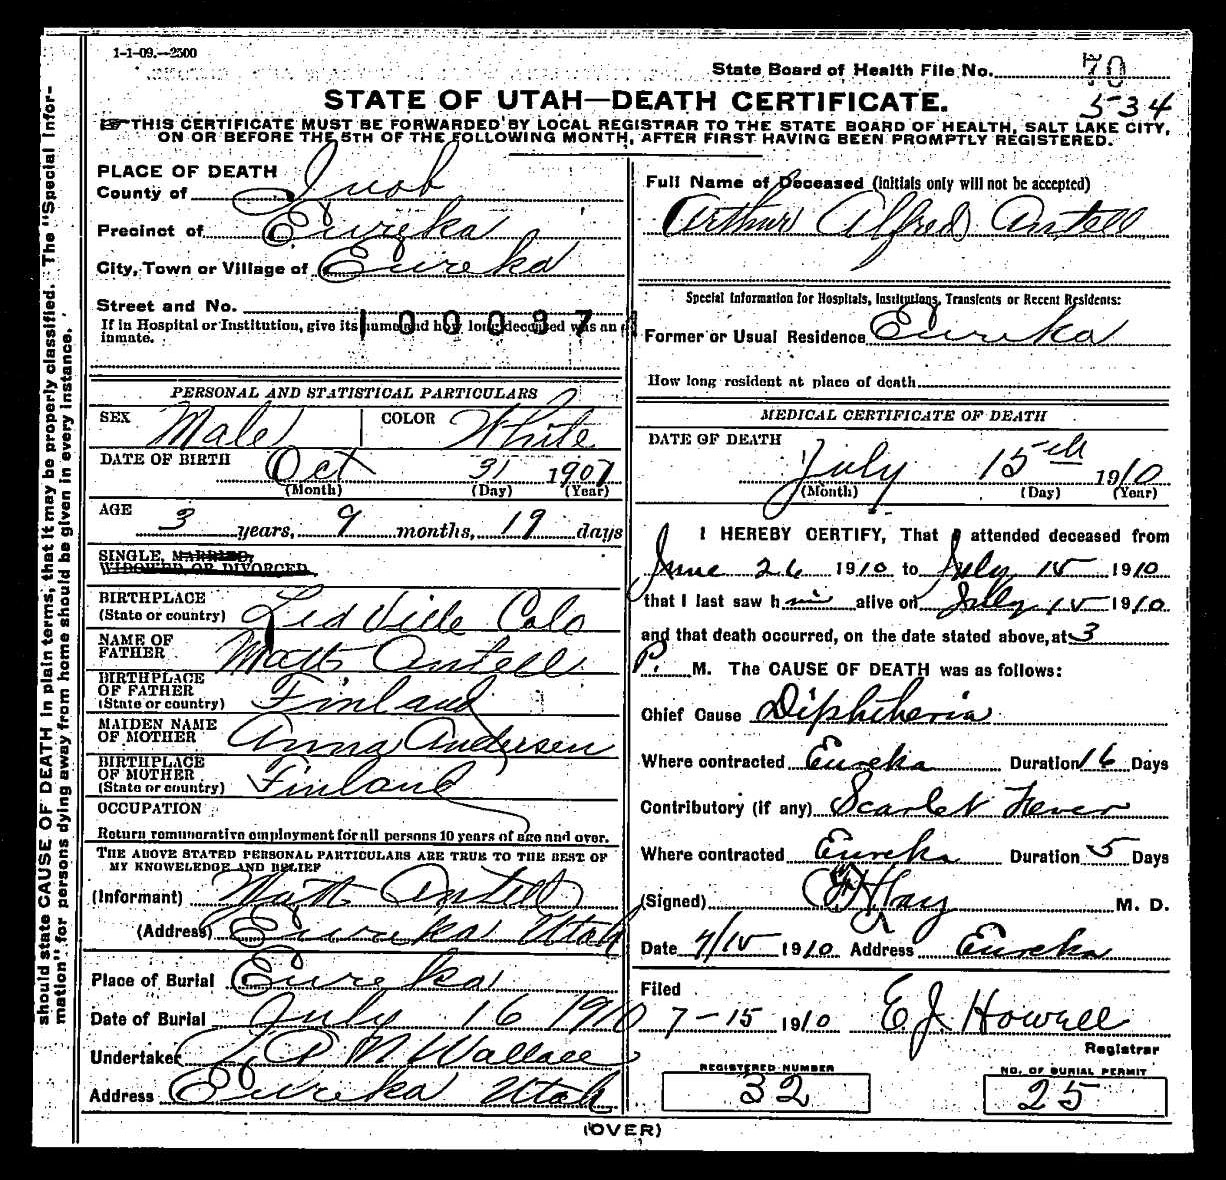 1-1-09.—2500
State Board of Health File No. 70
534
STATE OF UTAH—DEATH CERTIFICATE.
☞THIS CERTIFICATE MUST BE FORWARDED BY LOCAL REGISTRAR TO THE STATE BOARD OF HEALTH, SALT LAKE CITY,
ON OR BEFORE THE 5TH OF THE FOLLOWING MONTH, AFTER FIRST HAVING BEEN PROMPTLY REGISTERED.
should state CAUSE OF DEATH in plain terms, that it may be properly classified. The "Special Infor-
mation" for persons dying away from home should be given in every instance.
PLACE OF DEATH
County of Juab
Precinct of Eureka
City, Town or Village of Eureka
Street and No.
1000974
If in Hospital or Institution, give its name and how long deceased was an
inmate.
PERSONAL AND STATISTICAL PARTICULARS
SEX Male COLOR White
DATE OF BIRTH Oct 31 1907
(Month) (Day) (Year)
AGE 3 years, 9 months, 19 days
SINGLE, MARRIED,
WIDOWED OR DIVORCED
BIRTHPLACE
(State or country) Led Ville Colo
NAME OF
FATHER Matt Antell
BIRTHPLACE
OF FATHER
(State or country) Finland
MAIDEN NAME
OF MOTHER Anna Andersen
BIRTHPLACE
OF MOTHER
(State or country) Finland
OCCUPATION
Return remunerative employment for all persons 10 years of age and over.
THE ABOVE STATED PERSONAL PARTICULARS ARE TRUE TO THE BEST OF
MY KNOWLEDGE AND BELIEF
(Informant) Matt Antell
(Address) Eureka Utah
Place of Burial Eureka
Date of Burial July 16 1910
Undertaker P McWallace
Address Eureka Utah
Full Name of Deceased (initials only will not be accepted)
Arthur Alfred Antell
Special Information for Hospitals, Institutions, Transients or Recent Residents:
Former or Usual Residence Eureka
How long resident at place of death
MEDICAL CERTIFICATE OF DEATH
DATE OF DEATH
July 15th 1910
(Month) (Day) (Year)
I HEREBY CERTIFY, That I attended deceased from
June 26 1910 to July 15 1910
that I last saw him alive on July 15 1910
and that death occurred, on the date stated above, at 3
P. M. The CAUSE OF DEATH was as follows:
Chief Cause Diphtheria
Where contracted Eureka Duration 16 Days
Contributory (if any) Scarlet Fever
Where contracted Eureka Duration 5 Days
(Signed) Hay M. D.
Date 7/15 1910 Address Eureka
Filed
7-15 1910 E J Howell
Registrar
REGISTERED NUMBER
32
NO. OF BURIAL PERMIT
25
(OVER)